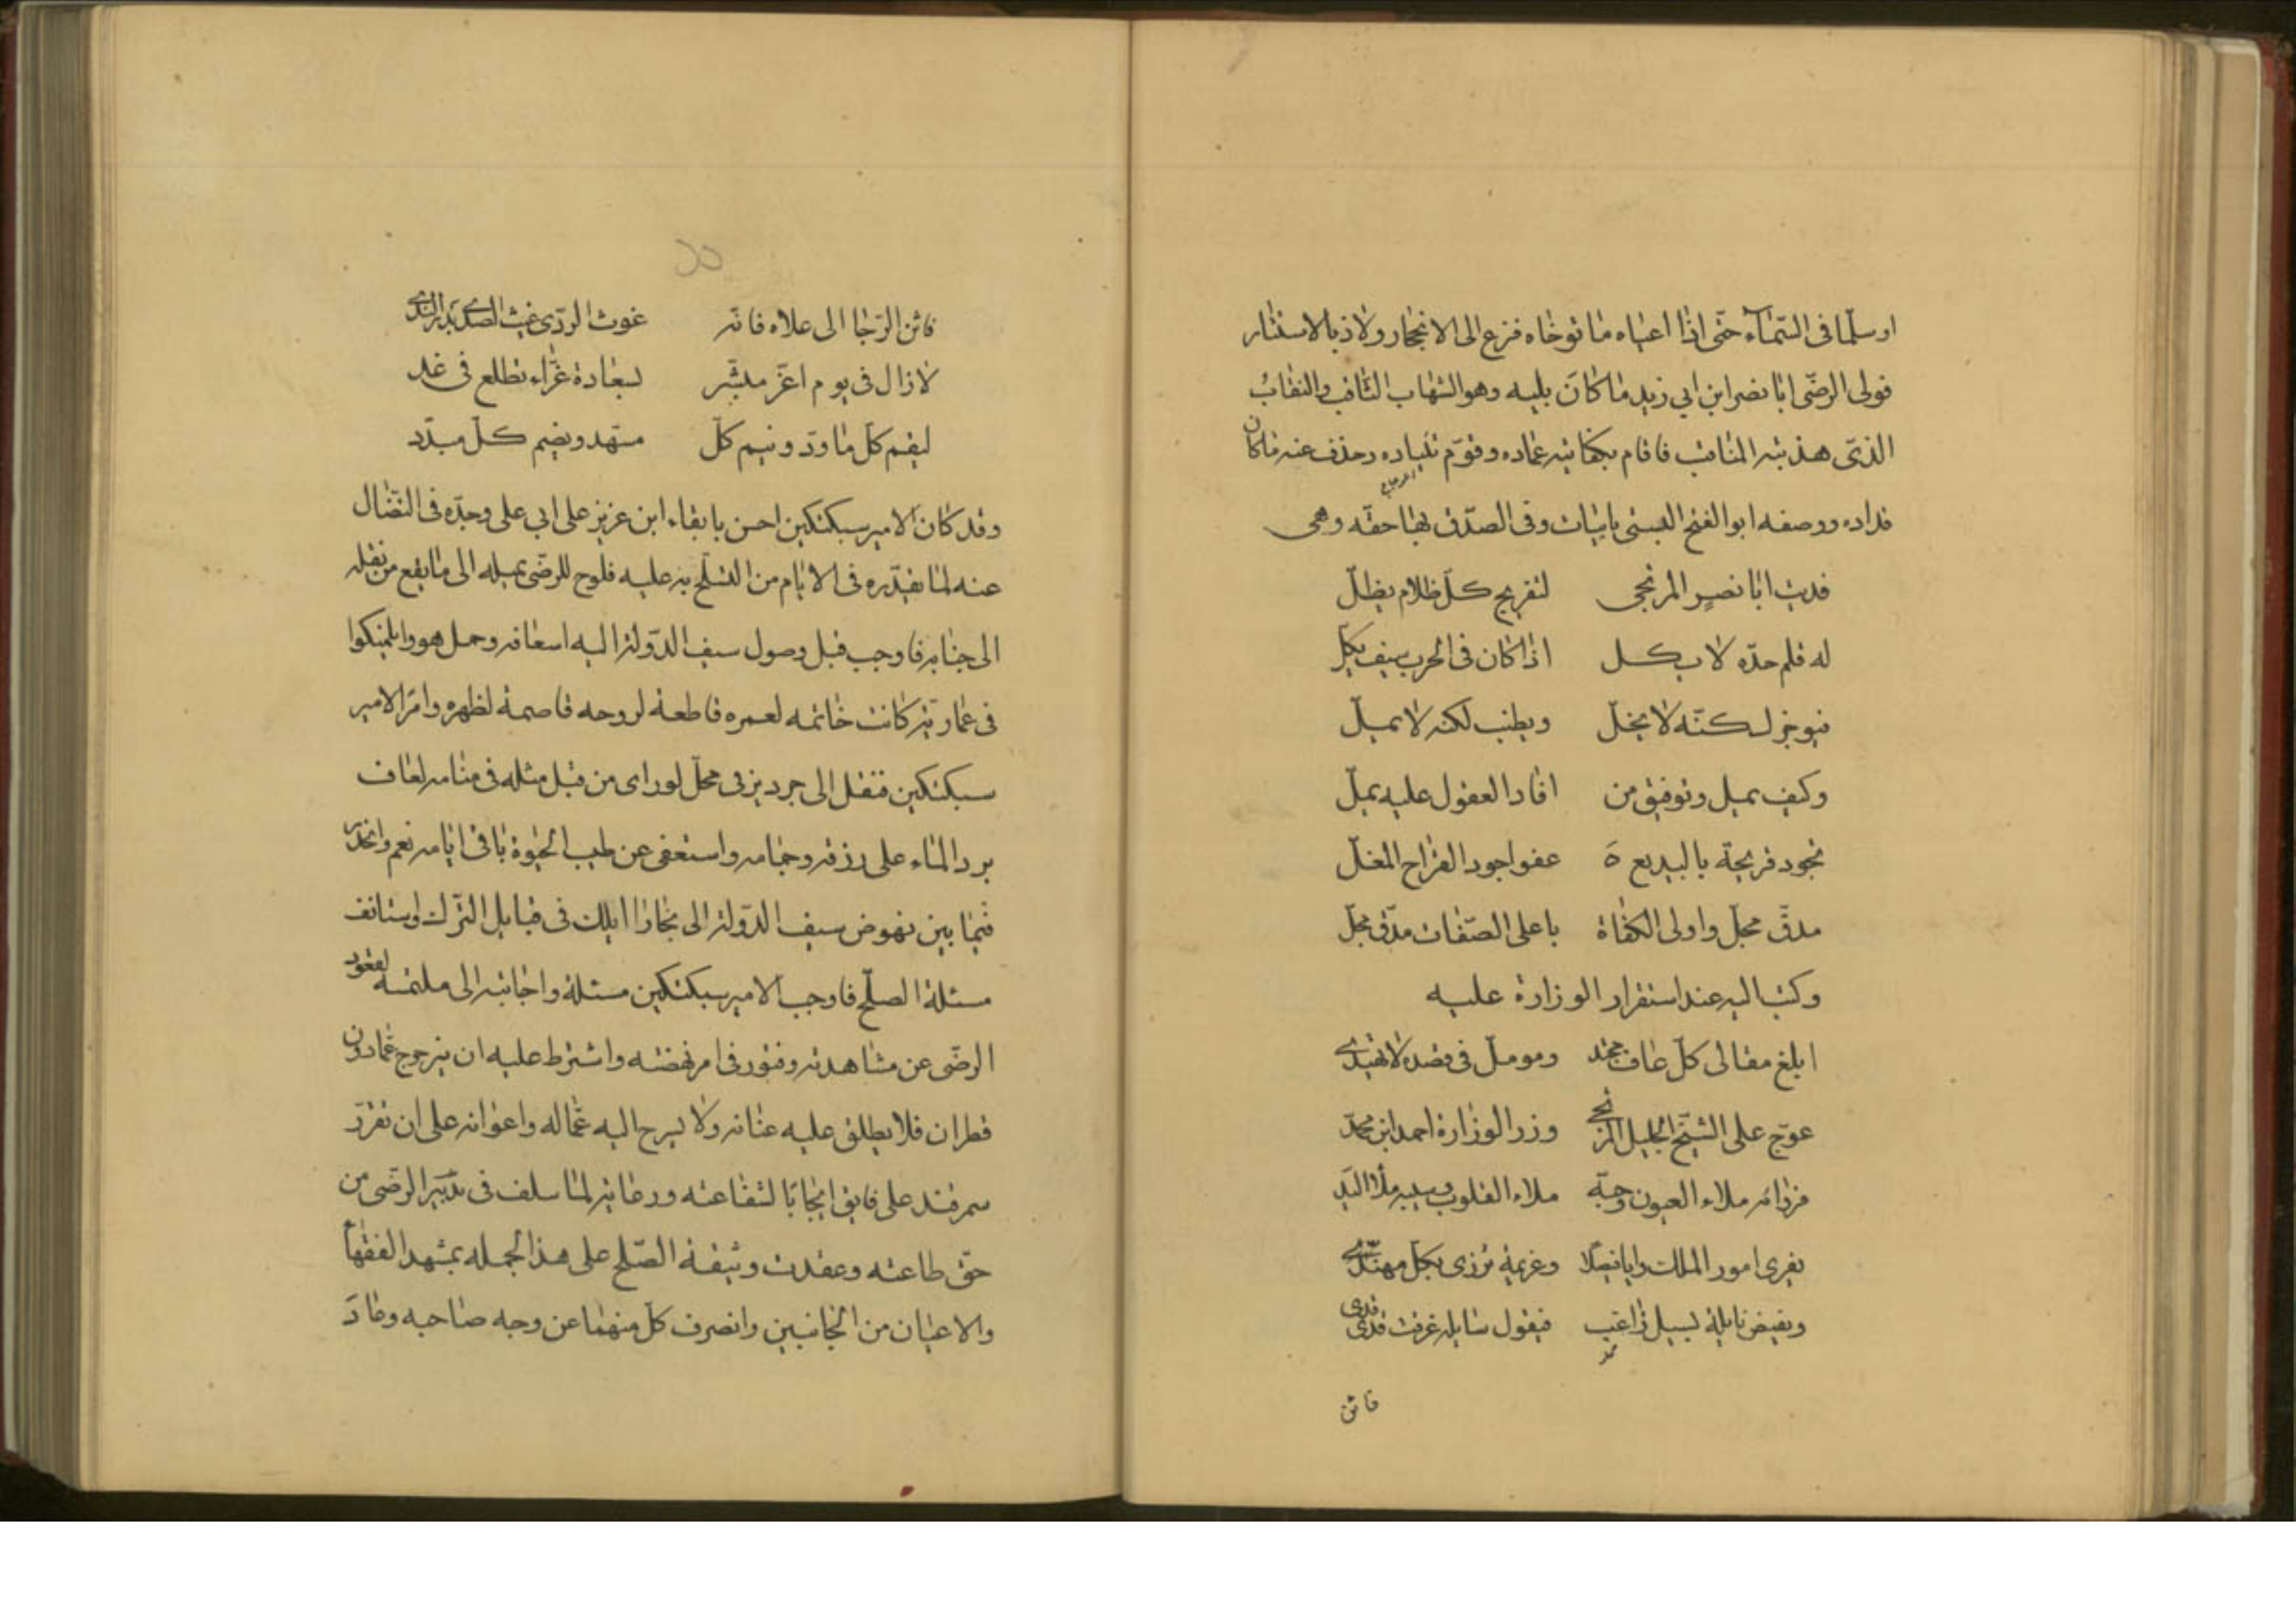 او سلّما فى السّماء حتّى اذا اعياه ما توخاه فزع الى الانجحار ولاذ بالاستتار
فولى الرضى ابا نصر ابن ابى زيد ما كان يليه وهو الشهاب الثاقب والنقاب
الذى هذبته المناقب فاقام بكفايته عماده وقوّم مياده وحذف عنه ما كان
قداده ووصفه ابو الفتح البستى بابيات وفى الصدق بها حقه وهى
فديت ابا نصر المرتجى لتفريج كلّ ظلام يظلّ
له قلم حدّه لا يكل اذا كان فى الحرب سيف يكلّ
فيوجز لكنّه لا يخلّ ويطنب لكنه لا يملّ
وكيف يمل وتوفيق من افاد العقول عليه يملّ
تجود قريحة بالبديع ة عفوا جود القراح المغلّ
مدقّ مجلّ واولى الكفاة باعلى الصّفات مدقّ مجلّ
وكتب اليه عند استقرار الوزارة عليه
ابلغ مقالى كلّ عاف مجتد ومومل فى قصده لا يهتدى
عوّج على الشيخ الجليل المرتجى وزر الوزارة احمد ابن محمد
فرواؤه ملاء العيون وحبّه ملاء القلوب وسيبه ملأ اليد
يفرى امور الملك رايا فيصلا وعزيمة تزرى بكلّ مهنّد
ويفيض نايله لسيل زاغب فيقول سايله غرقت قدى قدى
فاثن
فاثن الرّجا الى علاه فانّه غوث الردى غيث الصدى بدر الندى
لا زال فى يوم اغرّ مبشّر لسعادة غرّاء تطلع فى غد
ليقم كلّ ما ودّ ونيم كلّ مسهّد ويضم كلّ مبدّد
وقد كان الامير سبكتكين احسن بابقاء ابن عزيز على ابى على وجدّه فى النضال
عنه لما يقدّره فى الايام من التسلّح به عليه فلوح للرضى بميله الى ما يقع من نقله
الى جنابه فاوجب قبل وصول سيف الدولة اليه اسعافه وحمل هو وايلمنكوا
فى عمارية كانت خاتمه لعمره قاطعة لروحه قاصمة لظهره وامر الامير
سبكتكين فنقل الى جرديز فى محلّ لو راى من قبل مثله فى منامه لعاف
برد الماء على رزقه وجمامه واستعفى عن طيب الحيوة باقى ايامه نعم وانحدر
فيما بين نهوض سيف الدولة الى بخارا ايلك فى قبايل الترك واستانف
مسئلة الصلح فاوجب الامير سبكتكين مسئلة واجابته الى ملتمسه لقعود
الرضى عن مشاهدته وفتور فى امر نهضته واشترط عليه ان يتزحزح عما دون
قطران فلا يطلق عليه عنانه ولا يسرح اليه عمّاله واعوانه على ان تقرّر
سمرقند على فايق ايجابا لشفاعته ورعاية لما سلف فى تدبير الرضى من
حقّ طاعته وعقدت وثيقة الصّلح على هذا الجمله بمشهد الفقها
والاعيان من الجانبين وانصرف كلّ منهما عن وجه صاحبه وعاد